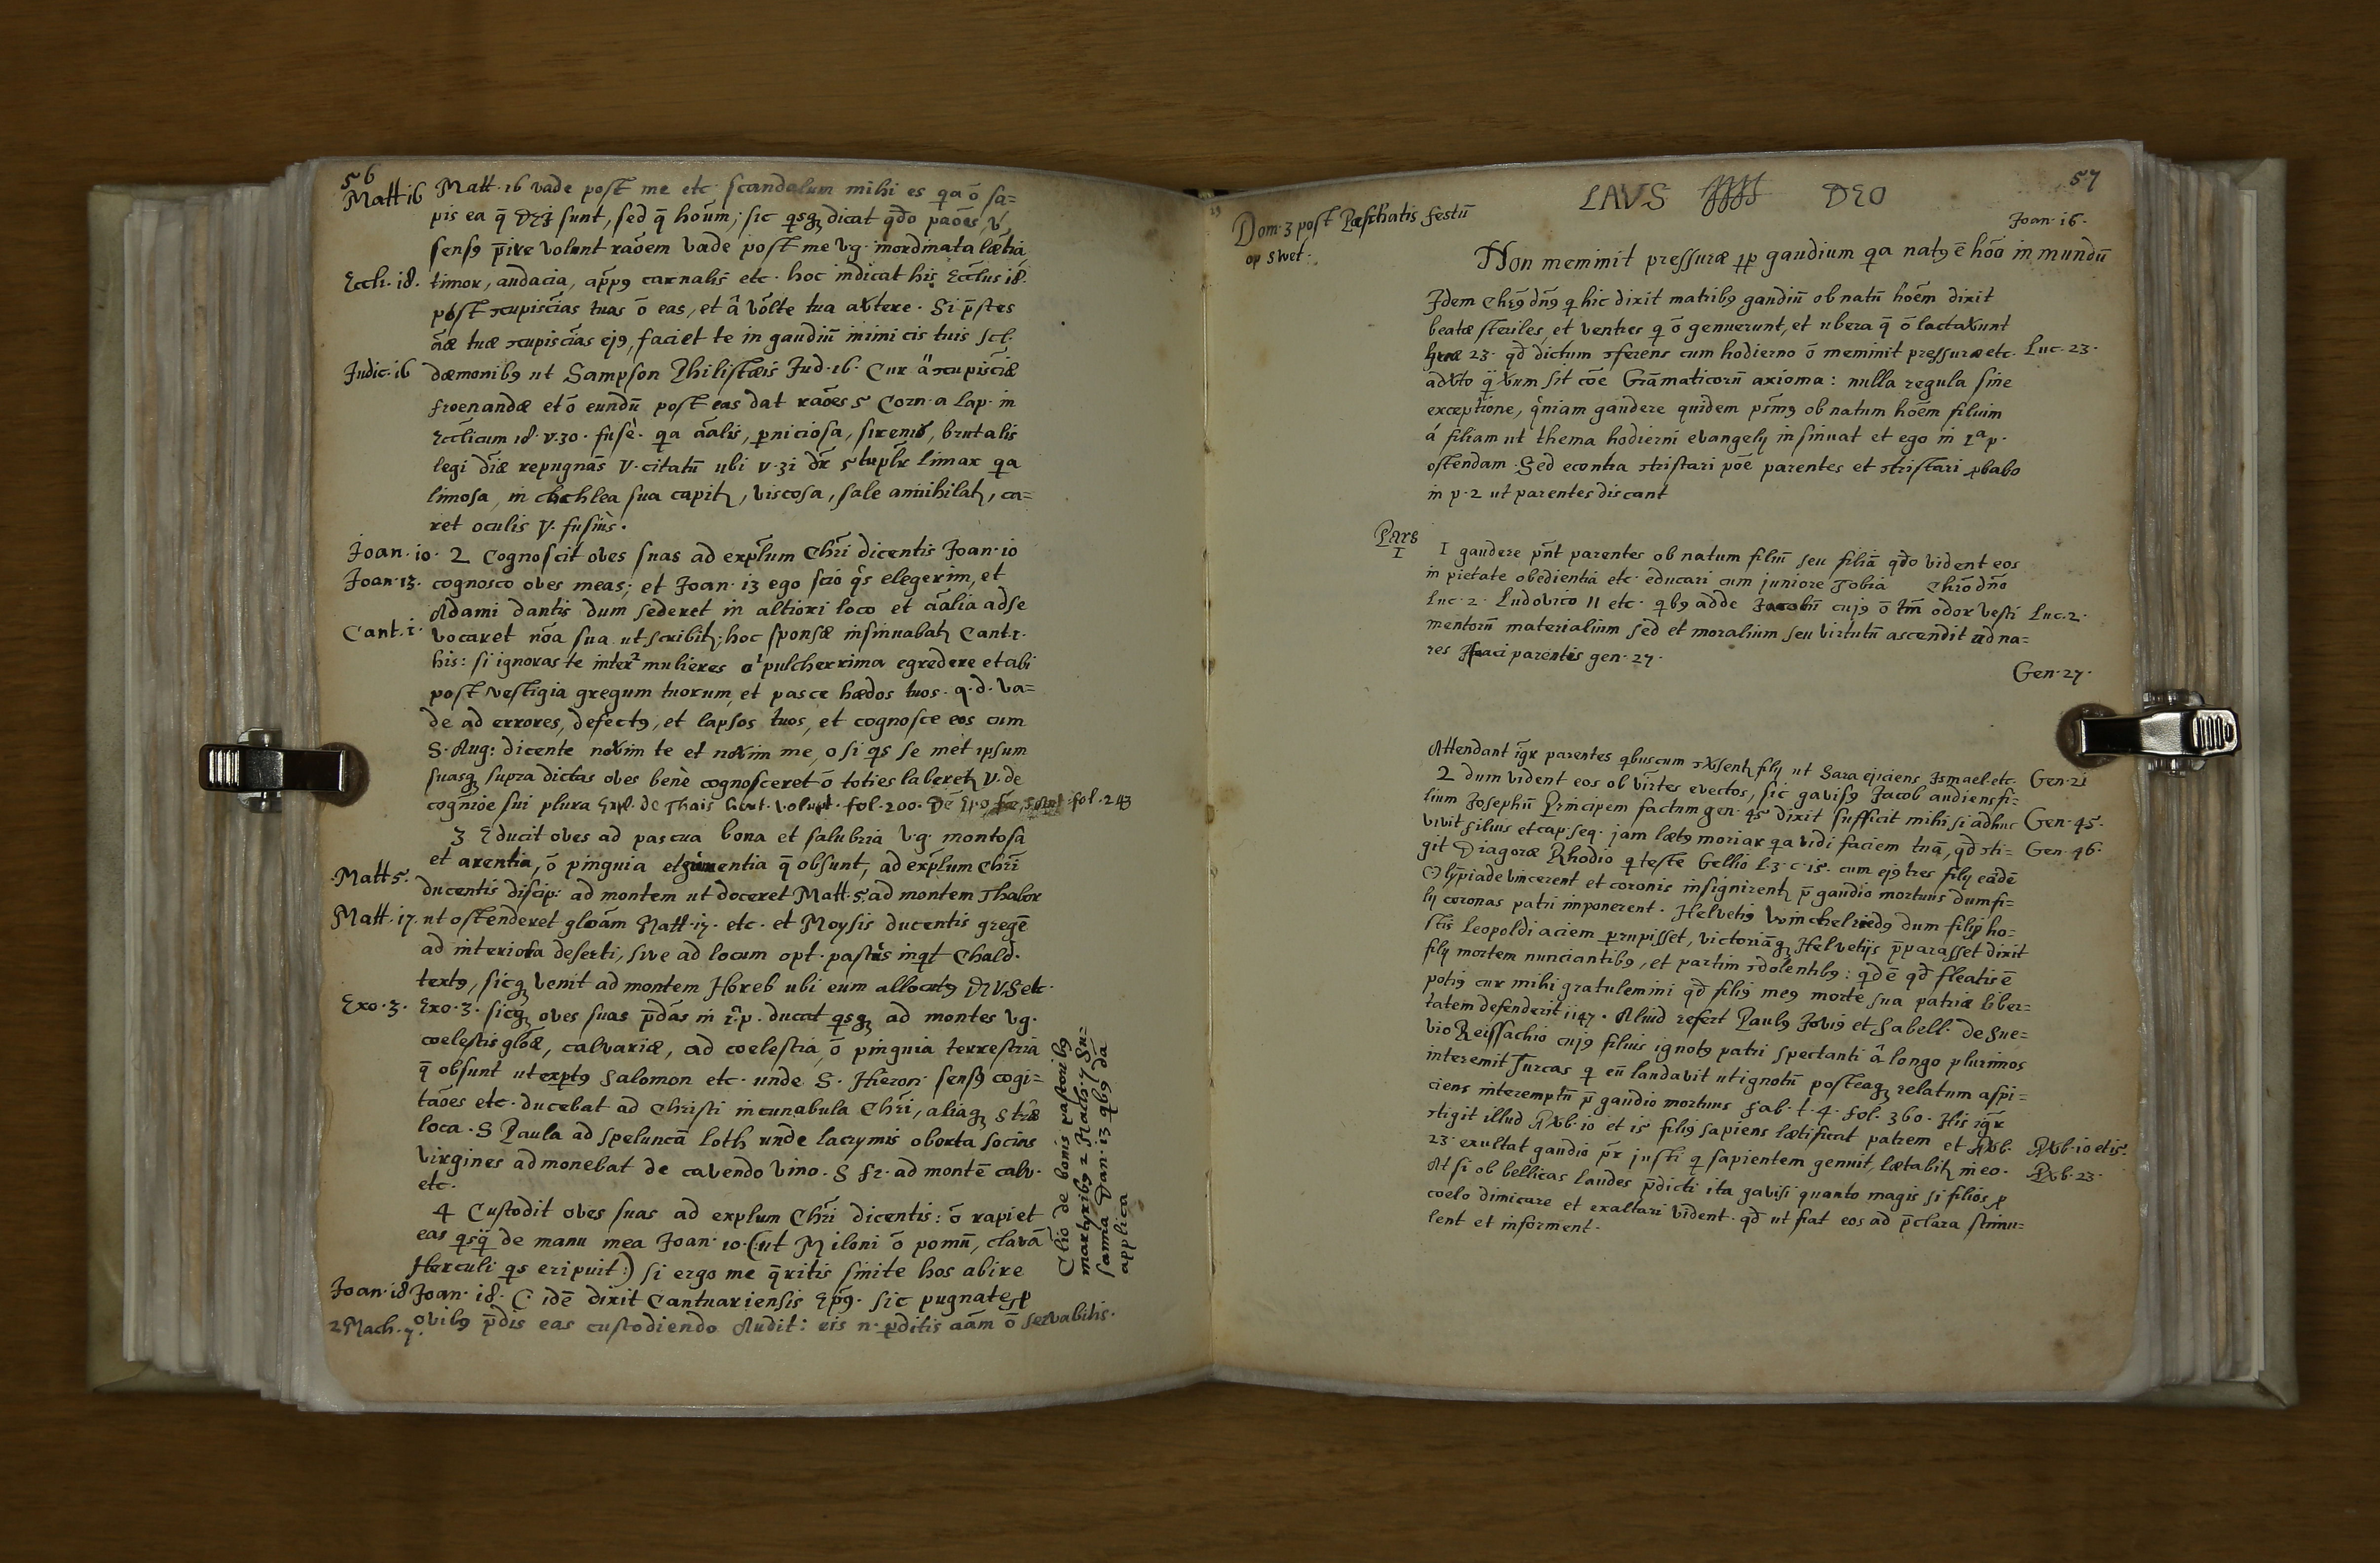 56
Matt 16 Matt. 16 vade post me etc. scandalum mihi es qa ō sa=
pis ea q̄ DEI sunt, sed q̄ hoūm; sic qsq dicat qdo paōes, v
sensꝰ p̄ire volunt raōem vade post me v.g. inordinata lætia
Eccli. 18. timor, audacia, appꝰ carnalis etc. hoc indicat his Ecclus 18.
post ɔcupiscīas tuas ō eas, et â vōlte tua avtere. Si p̄stes
āæ tuæ ɔcupiscīas ejꝰ, faciet te in gaudiū inimicis tuis scl.
Judic. 16 dæmonibꝰ ut Sampson Philistæis Jud. 16. Cur ä ɔcupiscīæ
froenandæ et ō eundū post eas dat raōes 5 Corn. a Lap. in
Ecclicum 18. v. 30. fusè. qa āalis, pniciosa, sirenis, brutalis
legi dīæ repugnās V. citatū ubi v. 31 dr̄ 5tuplr limax qa
limosa, in chochlea sua capit, viscosa, sale annihilat, ca=
ret oculis V. fusius.
Joan. 10. 2 Cognoscit oves suas ad explum Chri dicentis Joan. 10
Joan. 13. cognosco oves meas; et Joan. 13 ego scio qs elegerim, et
Adami dantis dum sederet in altiori loco et āalia ad se
Cant. 1. vocaret nōa sua ut scribit; hoc sponsæ insinuabat Cant. 1.
his: si ignoras te inter² mulieres o¹ pulcherrima egredere et abi
post vestigia gregum tuorum, et pasce hædos tuos. q. d. va=
de ad errores, defectꝰ, et lapsos tuos, et cognosce eos cum
S. Aug: dicente novim te et novim me, o si qs se met ipsum
suasq supra dictas oves benè cognosceret ō toties laberet V. de
cognioē sui plura Expl. de Thais volupt. fol. 200. fol. 243
3 Educit oves ad pascua bona et salubria v.g. montosa
et arentia, ō pinguia et q̄ obsunt, ad explum Chri
Matt 5. ducentis discip. ad montem ut doceret Matt. 5. ad montem Thabor
Matt. 17. ut ostenderet gloām Matt. 17. etc. et Moysis ducentis gregē
ad interiora deserti, sive ad locum opt. pastūs inqt Chald.
textꝰ, sicq venit ad montem Horeb ubi eum allocutꝰ DEUS etc.
Exo. 3. Exo. 3. sicq oves suas p̄das in 1ª p. ducat qsq ad montes v.g.
coelestis glōæ, calvariæ, ad coelestia, ō pinguia terrestria
q̄ obsunt ut exptꝰ Salomon etc. unde S. Hieron. sensꝰ cogi=
taōes etc. ducebat ad Christi incunabula Chri, aliaq S træ
loca. S Paula ad speluncā Loth unde lacrymis oborta socias
virgines admonebat de cavendo vino. S Fr. ad montē calv.
etc.
4 Custodit oves suas ad explum Chri dicentis: ō rapiet
eas qsq̄ de manu mea Joan. 10. (: ut Miloni ō pomū, clavā
Herculi qs eripuit :) si ergo me q̄ritis sinite hos abire
Joan. 18 Joan. 18. C. idē dixit Cantuariensis Epꝰ. sic pugnate p
2 Mach. 7. ovibꝰ p̄dis eas custodiendo Audit: eis n. pditis aām ō servabitis.
Clio de bonis pastoribꝰ
martyribꝰ 2 Mach. 7 Su=
sanna Dan. 13 qbꝰ da
applica
57
LAVS DEO
Dom. 3 post Paschatis festū
op s wet.
Joan. 16.
Non meminit pressuræ pp gaudium qa natꝰ ē hōo in mundū
Idem Chrꝰ dnꝰ q hic dixit matribꝰ gaudiū ob natū hoēm dixit
beatæ steriles, et ventres q ō genuerunt, et ubera q̄ ō lactavunt
Lucæ 23. qd dictum ɔferens cum hodierno ō meminit pressuræ etc. Luc. 23.
advto q̄ vum sit cōe Gramaticorū axioma: nulla regula sine
exceptione, qniam gaudere quidem psmꝰ ob natum hoēm filium
á filiam ut thema hodierni evangelij insinuat et ego in 1ª p.
ostendam. Sed econtra ɔtristari poē parentes et ɔtristari pbabo
in p. 2 ut parentes discant
Pars
1 1 gaudere pn̄t parentes ob natum filiū seu filiā qdo vident eos
in pietate obedientia etc. educari cum juniore Tobia Chrō dnō
Luc. 2. Ludovico 11 etc. qbꝰ adde Jacobū cujꝰ ō tm̄ odor vesti Luc. 2.
mentorū materialium sed et moralium seu virtutū ascendit ad na=
res Isaaci parentis gen. 27.
Gen. 27.
Attendant igr parentes qbuscum ɔvsent filij ut Sara ejiciens Ismael etc. Gen. 21
2 dum vident eos ob virtes evectos, sic gavisꝰ Jacob audiens fi=
lium Josephū Principem factum gen. 45 dixit sufficit mihi si adhuc Gen. 45.
vivit filius et cap. seq. jam lætꝰ moriar qa vidi faciem tuā, qd ɔti= Gen. 46.
git Diagoræ Rhodio q teste Gellio l. 3. c. 15. cum ejꝰ tres filij eādē
Olypiade vincerent et coronis insignirent p̄ gaudio mortuus dum fi=
lij coronas patri imponerent. Helvetiꝰ Winchelriedꝰ dum filiꝰ ho=
stis Leopoldi aciem prupisset, victoriāq Helvetijs p̄parasset dixit
filij mortem nunciantibꝰ, et partim ɔdolentibꝰ: qd ē qd fleatis ē
potiꝰ cur mihi gratulemini qd filiꝰ meꝰ morte sua patriæ liber=
tatem defenderit 1147. Aliud refert Paulꝰ Joviꝰ et Sabell. de Sue=
vio Reissachio cujꝰ filius ignotꝰ patri spectanti â longo plurimos
interemit Turcas q eū laudavit ut ignotū posteaq relatum aspi=
ciens interemptū p̄ gaudio mortuus fab. t. 4. fol. 360. His igr
ɔtigit illud Pvb. 10 et 15 filiꝰ sapiens lætificat patrem et Pvb. Pvb. 10 et 15.
23 exultat gaudio pr justi q sapientem genuit, lætabit in eo. Pvb. 23.
At si ob bellicas laudes p̄dicti ita gavisi quanto magis si filios p
coelo dimicare et exaltari vident. qd ut fiat eos ad p̄clara stimu=
lent et informent.